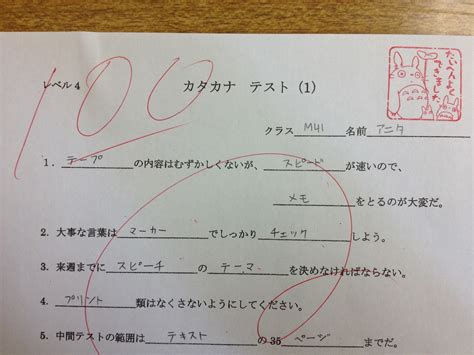 100
たいへんよく
できました
レベル4
カタカナ テスト（1）
クラス M41 名前 アニタ
1. テープ の内容はむずかしくないが、 スピード が速いので、
メモ をとるのが大変だ。
2. 大事な言葉は マーカー でしっかり チェック しよう。
3. 来週までに スピーチ の テーマ を決めなければならない。
4. プリント 類はなくさないようにしてください。
5. 中間テストの範囲は テキスト の35 ページ までだ。